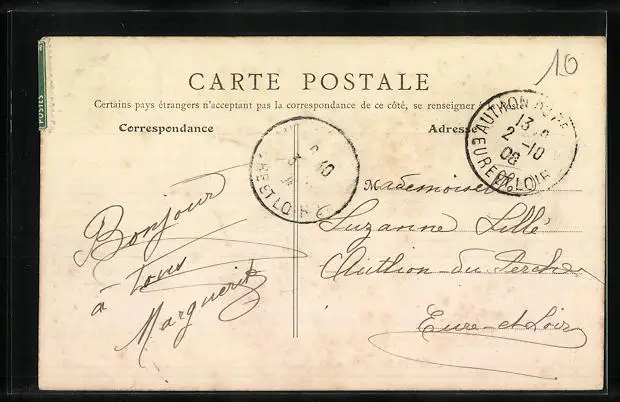 10
CARTE POSTALE
Certains pays étrangers n'acceptant pas la correspondance de ce côté, se renseigner à la Poste
Correspondance
Adresse
AUTHON DU P
13
2 -10
08
EURE ET LOIR
10
ET LOIR
Mademoiselle
Suzanne Lillé
Authon-du-Perche
Eure-et-Loir
Bonjour
à tous
Marguerite
POSTES